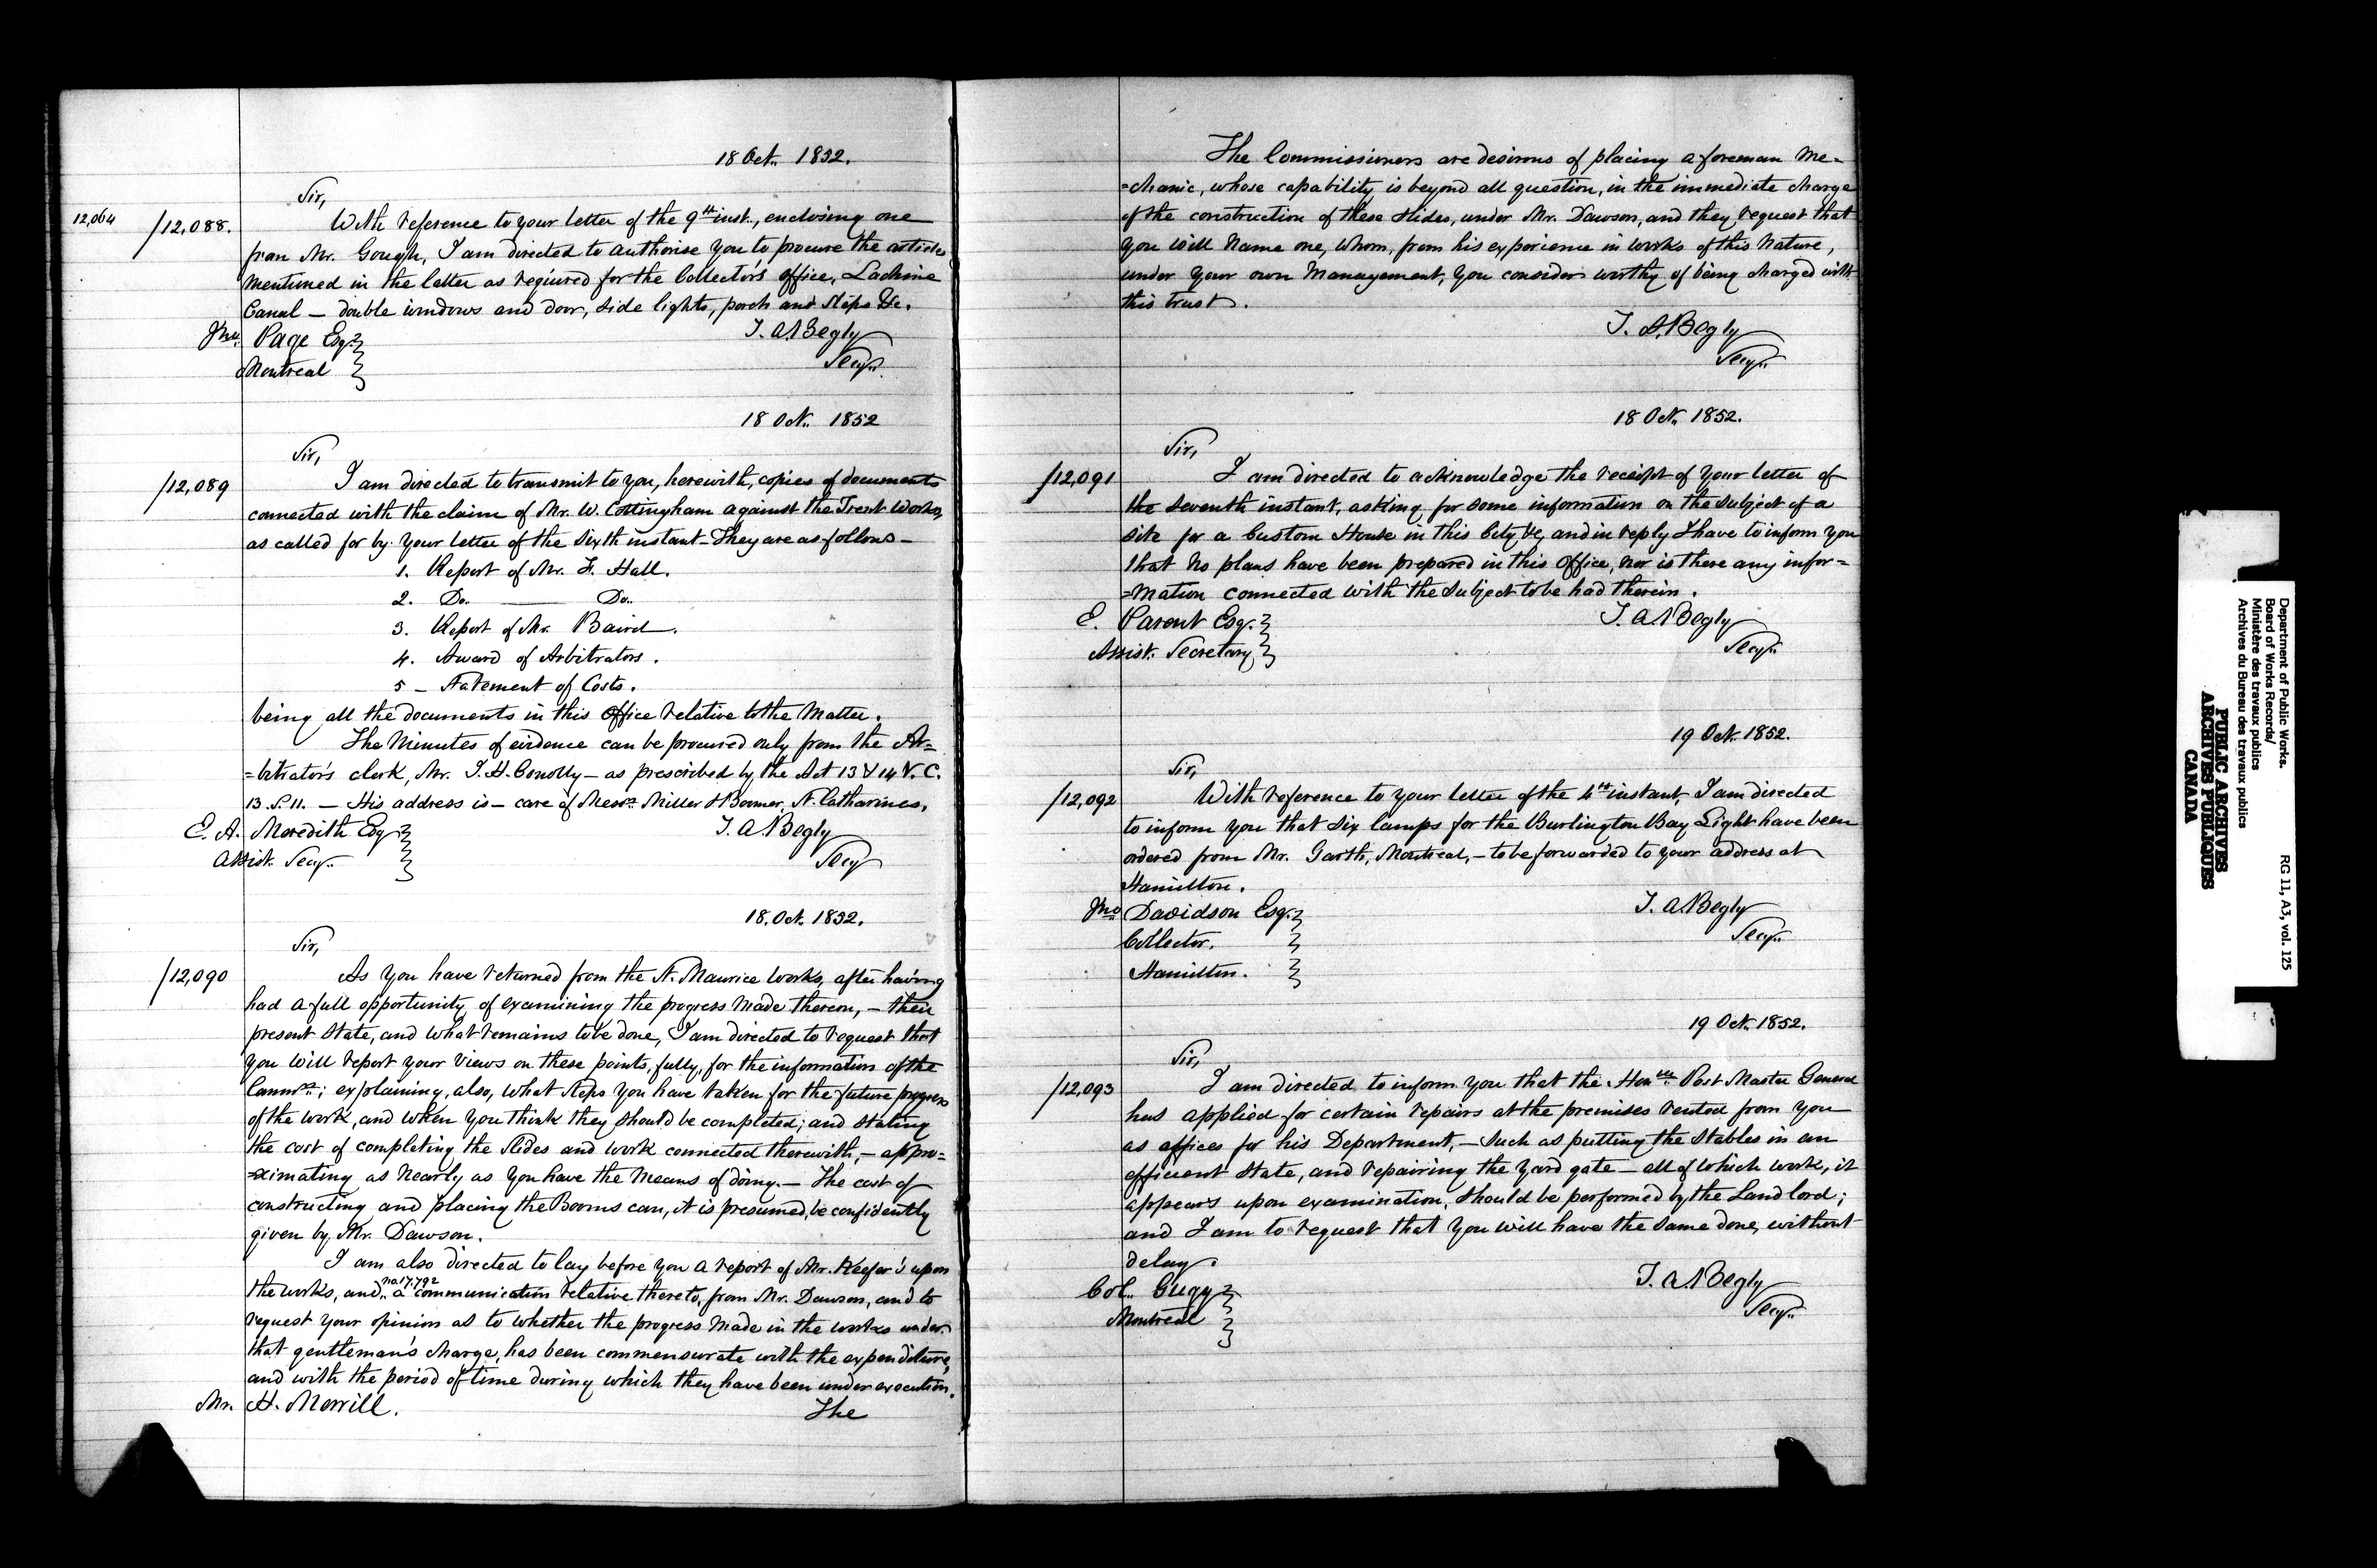 18 Oct. 1852.
Sir,
12,064 /12,088. With reference to your letter of the 9th inst., enclosing one
from Mr. Gough, I am directed to authorise you to procure the articles
mentioned in the letter as required for the Collector's office, Lachine
Canal — double windows and door, side lights, porch and steps &c.
Jno. Page Esq. T. A. Begly
Montreal Secy.
18 Oct. 1852
Sir,
/12,089 I am directed to transmit to you, herewith, copies of documents
connected with the claim of Mr. W. Cottingham against the Trent Works,
as called for by your letter of the sixth instant — They are as follows —
1. Report of Mr. F. Hall.
2. Do. —— Do.
3. Report of Mr. Baird.
4. Award of Arbitrators.
5 — Statement of Costs.
being all the documents in this Office relative to the matter.
The minutes of evidence can be procured only from the Ar=
=bitrator's clerk, Mr. J. H. Conolly — as prescribed by the Act 13 & 14 V. C.
13. S. 11. — His address is — care of Messrs. Miller & Boomer, St. Catharines.
E. A. Meredith Esq T. A. Begly
Assist. Secy. Secy
18. Oct. 1852.
Sir,
/12,090 As you have returned from the St. Maurice works, after having
had a full opportunity of examining the progress made thereon, — their
present state, and what remains to be done, I am directed to request that
you will report your views on these points, fully, for the information of the
Commrs.; explaining, also, what steps you have taken for the future progress
of the work, and when you think they should be completed; and stating
the cost of completing the slides and work connected therewith, — appro=
=ximating as nearly as you have the means of doing. — The cost of
constructing and placing the Booms can, it is presumed, be confidently
given by Mr. Dawson.
I am also directed to lay before you a report of Mr. Keefer's upon
the works, and no. 17,792 a communication relative thereto, from Mr. Dawson, and to
request your opinion as to whether the progress made in the works under
that gentleman's charge, has been commensurate with the expenditure,
and with the period of time during which they have been under execution.
Mr. H. Merrill. The
The Commissioners are desirous of placing a foreman me=
=chanic, whose capability is beyond all question, in the immediate charge
of the construction of these slides, under Mr. Dawson, and they request that
you will name one, whom, from his experience in works of this nature,
under your own management, you consider worthy of being charged with
this trust.
T. A. Begly
Secy.
18 Oct. 1852.
Sir,
/12,091 I am directed to acknowledge the receipt of your letter of
the seventh instant, asking for some information on the subject of a
site for a Custom House in this City &c, and in reply I have to inform you
that no plans have been prepared in this Office, nor is there any infor=
=mation connected with the subject to be had therein.
E. Parent Esq. T. A. Begly
Assist. Secretary Secy.
19 Oct. 1852.
Sir,
/12,092 With reference to your letter of the 4th instant, I am directed
to inform you that six lamps for the Burlington Bay Light have been
ordered from Mr. Garth, Montreal, — to be forwarded to your address at
Hamilton.
Jno Davidson Esq. T. A. Begly
Collector. Secy.
Hamilton.
19 Oct. 1852.
Sir,
/12,093 I am directed to inform you that the Honble. Post Master General
has applied for certain repairs at the premises rented from you
as offices for his Department, — such as putting the stables in an
efficient state, and repairing the yard gate — all of which work, it
appears upon examination, should be performed by the Landlord;
and I am to request that you will have the same done, without
delay.
Col. Gugy T. A. Begly
Montreal Secy.
Department of Public Works. RG 11, A3, vol. 125
Board of Works Records/
Ministère des travaux publics
Archives du Bureau des travaux publics
PUBLIC ARCHIVES
ARCHIVES PUBLIQUES
CANADA